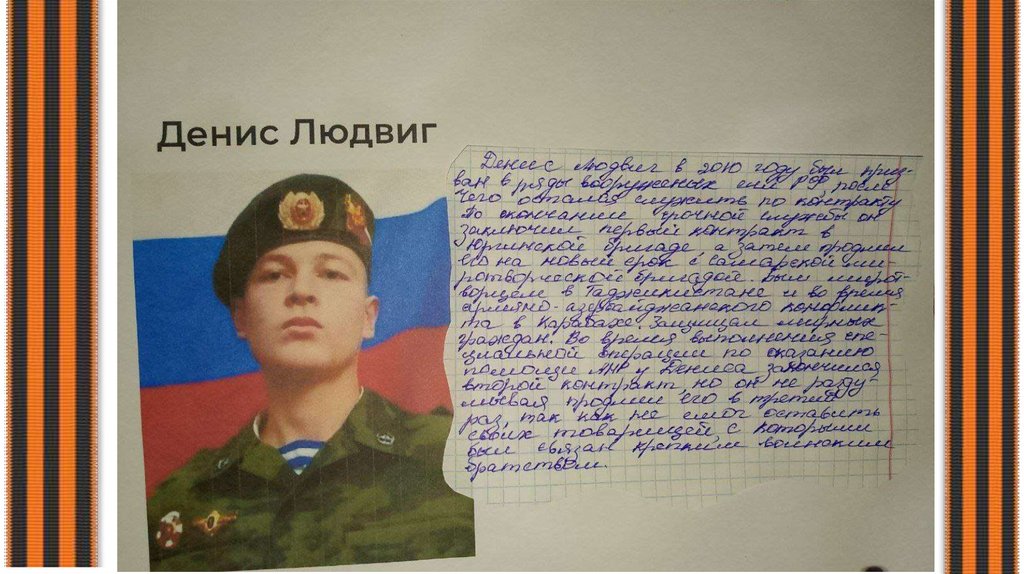 Денис Людвиг
Денис Людвиг в 2010 году был приз-
ван в ряды вооруженых сил РФ, после
чего остался служить по контракту
По окончании срочной службы он
заключил первый контракт в
Юргинской бригаде, а затем продлил
его на новый срок с Самарской ми-
ротворческой бригадой. Был мирот-
ворцем в Таджикистане и во время
армяно-азербайджанского конфлик-
та в Карабахе. Защищал мирных
граждан. Во время выполнения спе-
циальной операции по оказанию
помощи ЛНР у Дениса закончился
второй контракт, но он не разду-
мывая продлил его в третий
раз, так как не смог оставить
своих товарищей с которыми
был связан крепким воинским
братством.